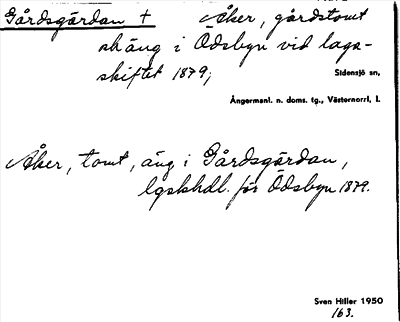 Gårdsgärdan + Åker, gårdstomt
och äng i Ödsbyn vid laga-
skiftet 1879;
Sidensjö sn,
Ångermanl. n. doms. tg., Västernorrl, l.
Åker, tomt, äng i Gårdsgärdan,
lgskhdl. för Ödsbyn 1879.
Sven Hiller 1950
163.